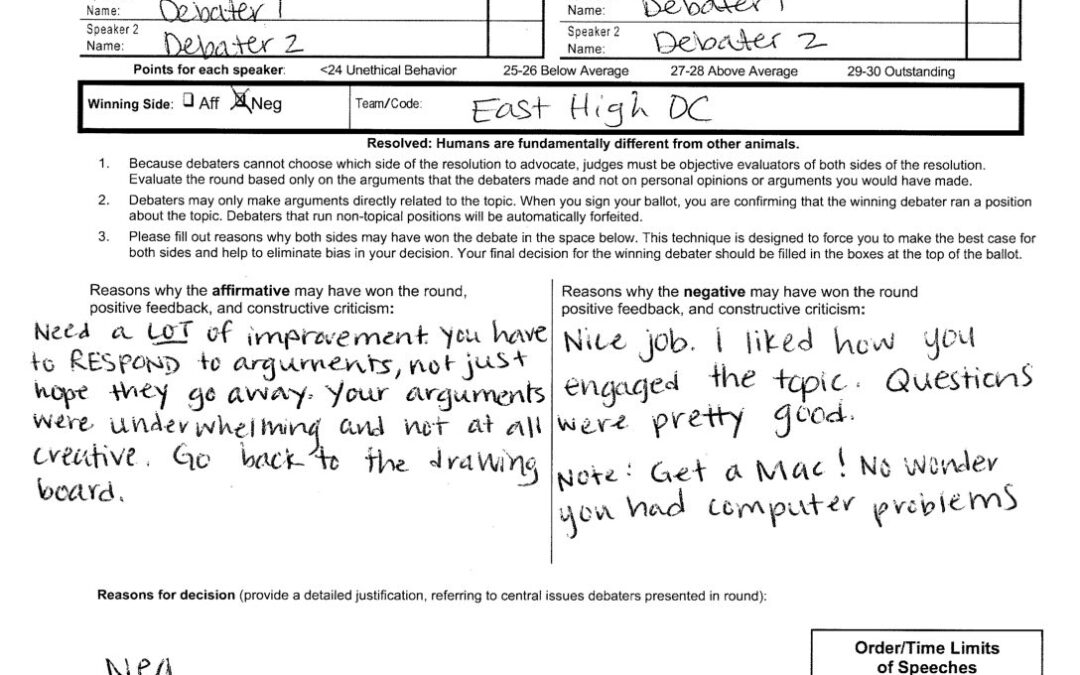 Name: Debater 1
Name: Debater 1
Speaker 2
Name: Debater 2
Speaker 2
Name: Debater 2
Points for each speaker: <24 Unethical Behavior 25-26 Below Average 27-28 Above Average 29-30 Outstanding
Winning Side: Aff Neg Team/Code: East High DC
Resolved: Humans are fundamentally different from other animals.
1. Because debaters cannot choose which side of the resolution to advocate, judges must be objective evaluators of both sides of the resolution.
Evaluate the round based only on the arguments that the debaters made and not on personal opinions or arguments you would have made.
2. Debaters may only make arguments directly related to the topic. When you sign your ballot, you are confirming that the winning debater ran a position
about the topic. Debaters that run non-topical positions will be automatically forfeited.
3. Please fill out reasons why both sides may have won the debate in the space below. This technique is designed to force you to make the best case for
both sides and help to eliminate bias in your decision. Your final decision for the winning debater should be filled in the boxes at the top of the ballot.
Reasons why the affirmative may have won the round,
positive feedback, and constructive criticism:
Need a LOT of improvement. You have
to RESPOND to arguments, not just
hope they go away. Your arguments
were underwhelming and not at all
creative. Go back to the drawing
board.
Reasons why the negative may have won the round
positive feedback, and constructive criticism:
Nice job. I liked how you
engaged the topic. Questions
were pretty good.
Note: Get a Mac! No wonder
you had computer problems
Reasons for decision (provide a detailed justification, referring to central issues debaters presented in round):
Neg
Order/Time Limits
of Speeches